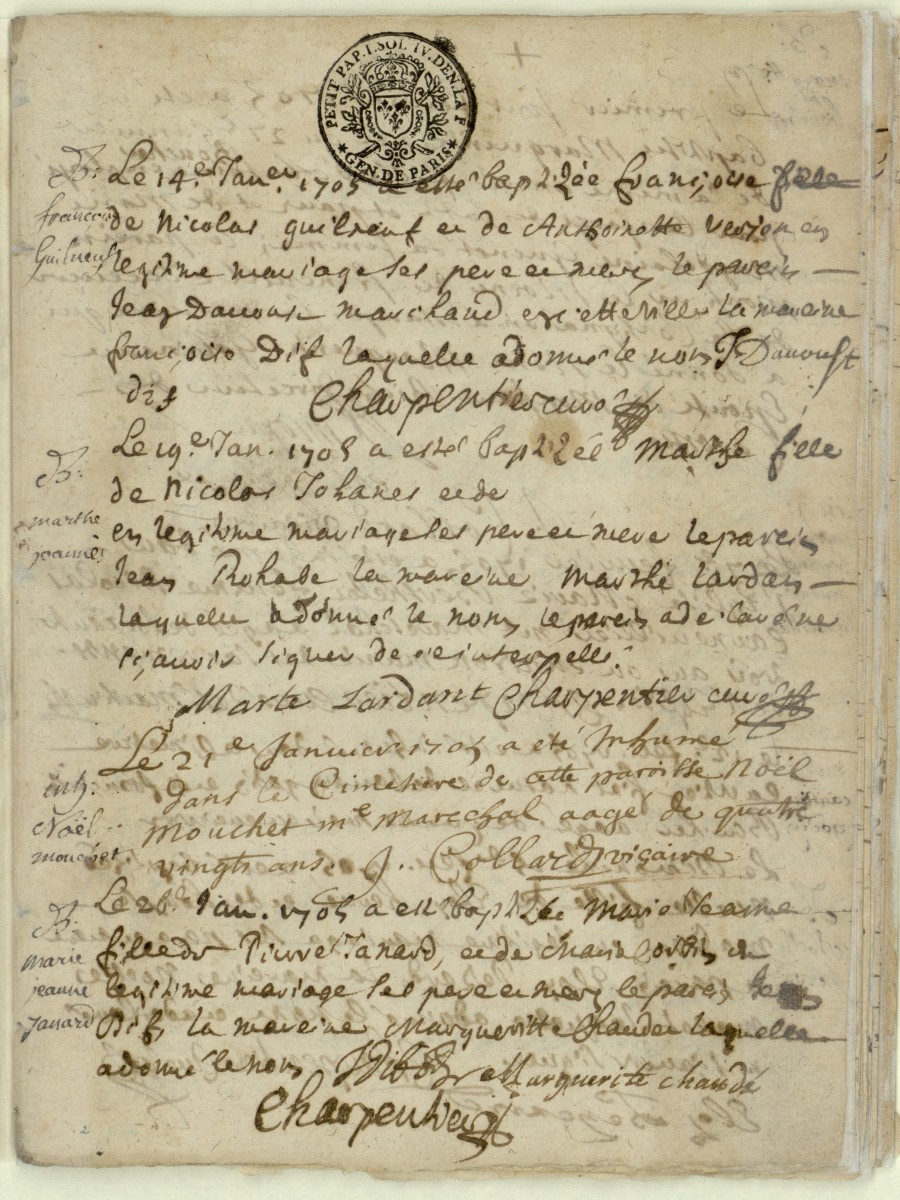 PETIT PAP. 1. SOL IV. DEN. LA F
GEN. DE PARIS
B:
françoise
Guilneuf
Le 14e Janer. 1705 a esté baptizée françoise fille
de Nicolas guilneuf et de Anthoinette verjon en
legitime mariage ses pere et mere, le parein
Jean Davoust marchand en cette ville la mareine
françoise Dif laquelle a donné le nom J Davoust
dif
Charpentier curé
B:
marthe
joannes
Le 19e Jan. 1705 a esté baptizée Marthe fille
de Nicolas Johanes et de
en legitime mariage ses pere et mere le parein
Jean Rohade la mareine Marthe lardan
laquelle a donné le nom, le parein a declaré ne
sçavoir signer de ce interpellé.
Marte Lardant Charpentier curé
inh:
Noël
mouchet
Le 21e Janvier 1705 a été Inhumé
dans le Cimetiere de cette paroisse Noël
Mouchet me Marechal aagé de quatre
vingts ans. J. Collard vicaire
B:
marie
jeanne
Janard
Le 26e Jan. 1705 a esté baptizée Marie Jeanne
fille de Pierre Janard, et de Marie Corbin en
legitime mariage ses pere et mere, le parein
Dif, la mareine Margueritte Chaudé laquelle
a donné le nom Marguerite chaudé
Charpentier
2